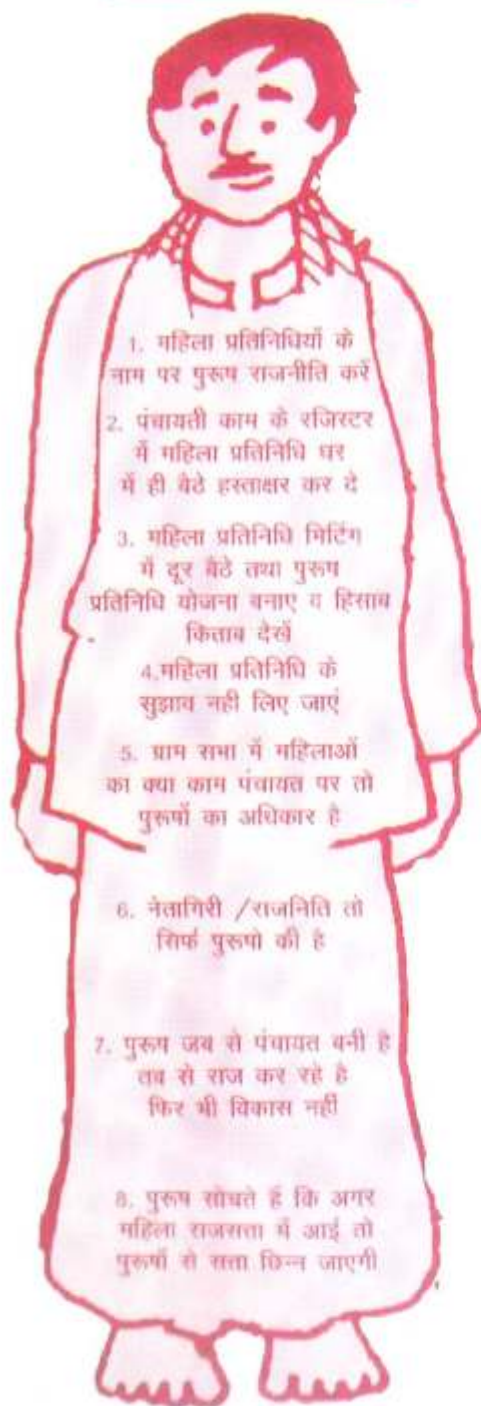 1. महिला प्रतिनिधियों के
नाम पर पुरूष राजनीति करें
2. पंचायती काम के रजिस्टर
में महिला प्रतिनिधि घर
में ही बैठे हस्ताक्षर कर दे
3. महिला प्रतिनिधि मिटिंग
में दूर बैठे तथा पुरूष
प्रतिनिधि योजना बनाए व हिसाब
किताब देखें
4.महिला प्रतिनिधि के
सुझाव नही लिए जाएं
5. ग्राम सभा में महिलाओं
का क्या काम पंचायत पर तो
पुरूषों का अधिकार है
6. नेतागिरी /राजनिति तो
सिर्फ पुरूषो की है
7. पुरूष जब से पंचायत बनी है
तब से राज कर रहे है
फिर भी विकास नहीं
8. पुरूष सोचते हैं कि अगर
महिला राजसत्ता में आई तो
पुरूषों से सत्ता छिन्न जाएगी